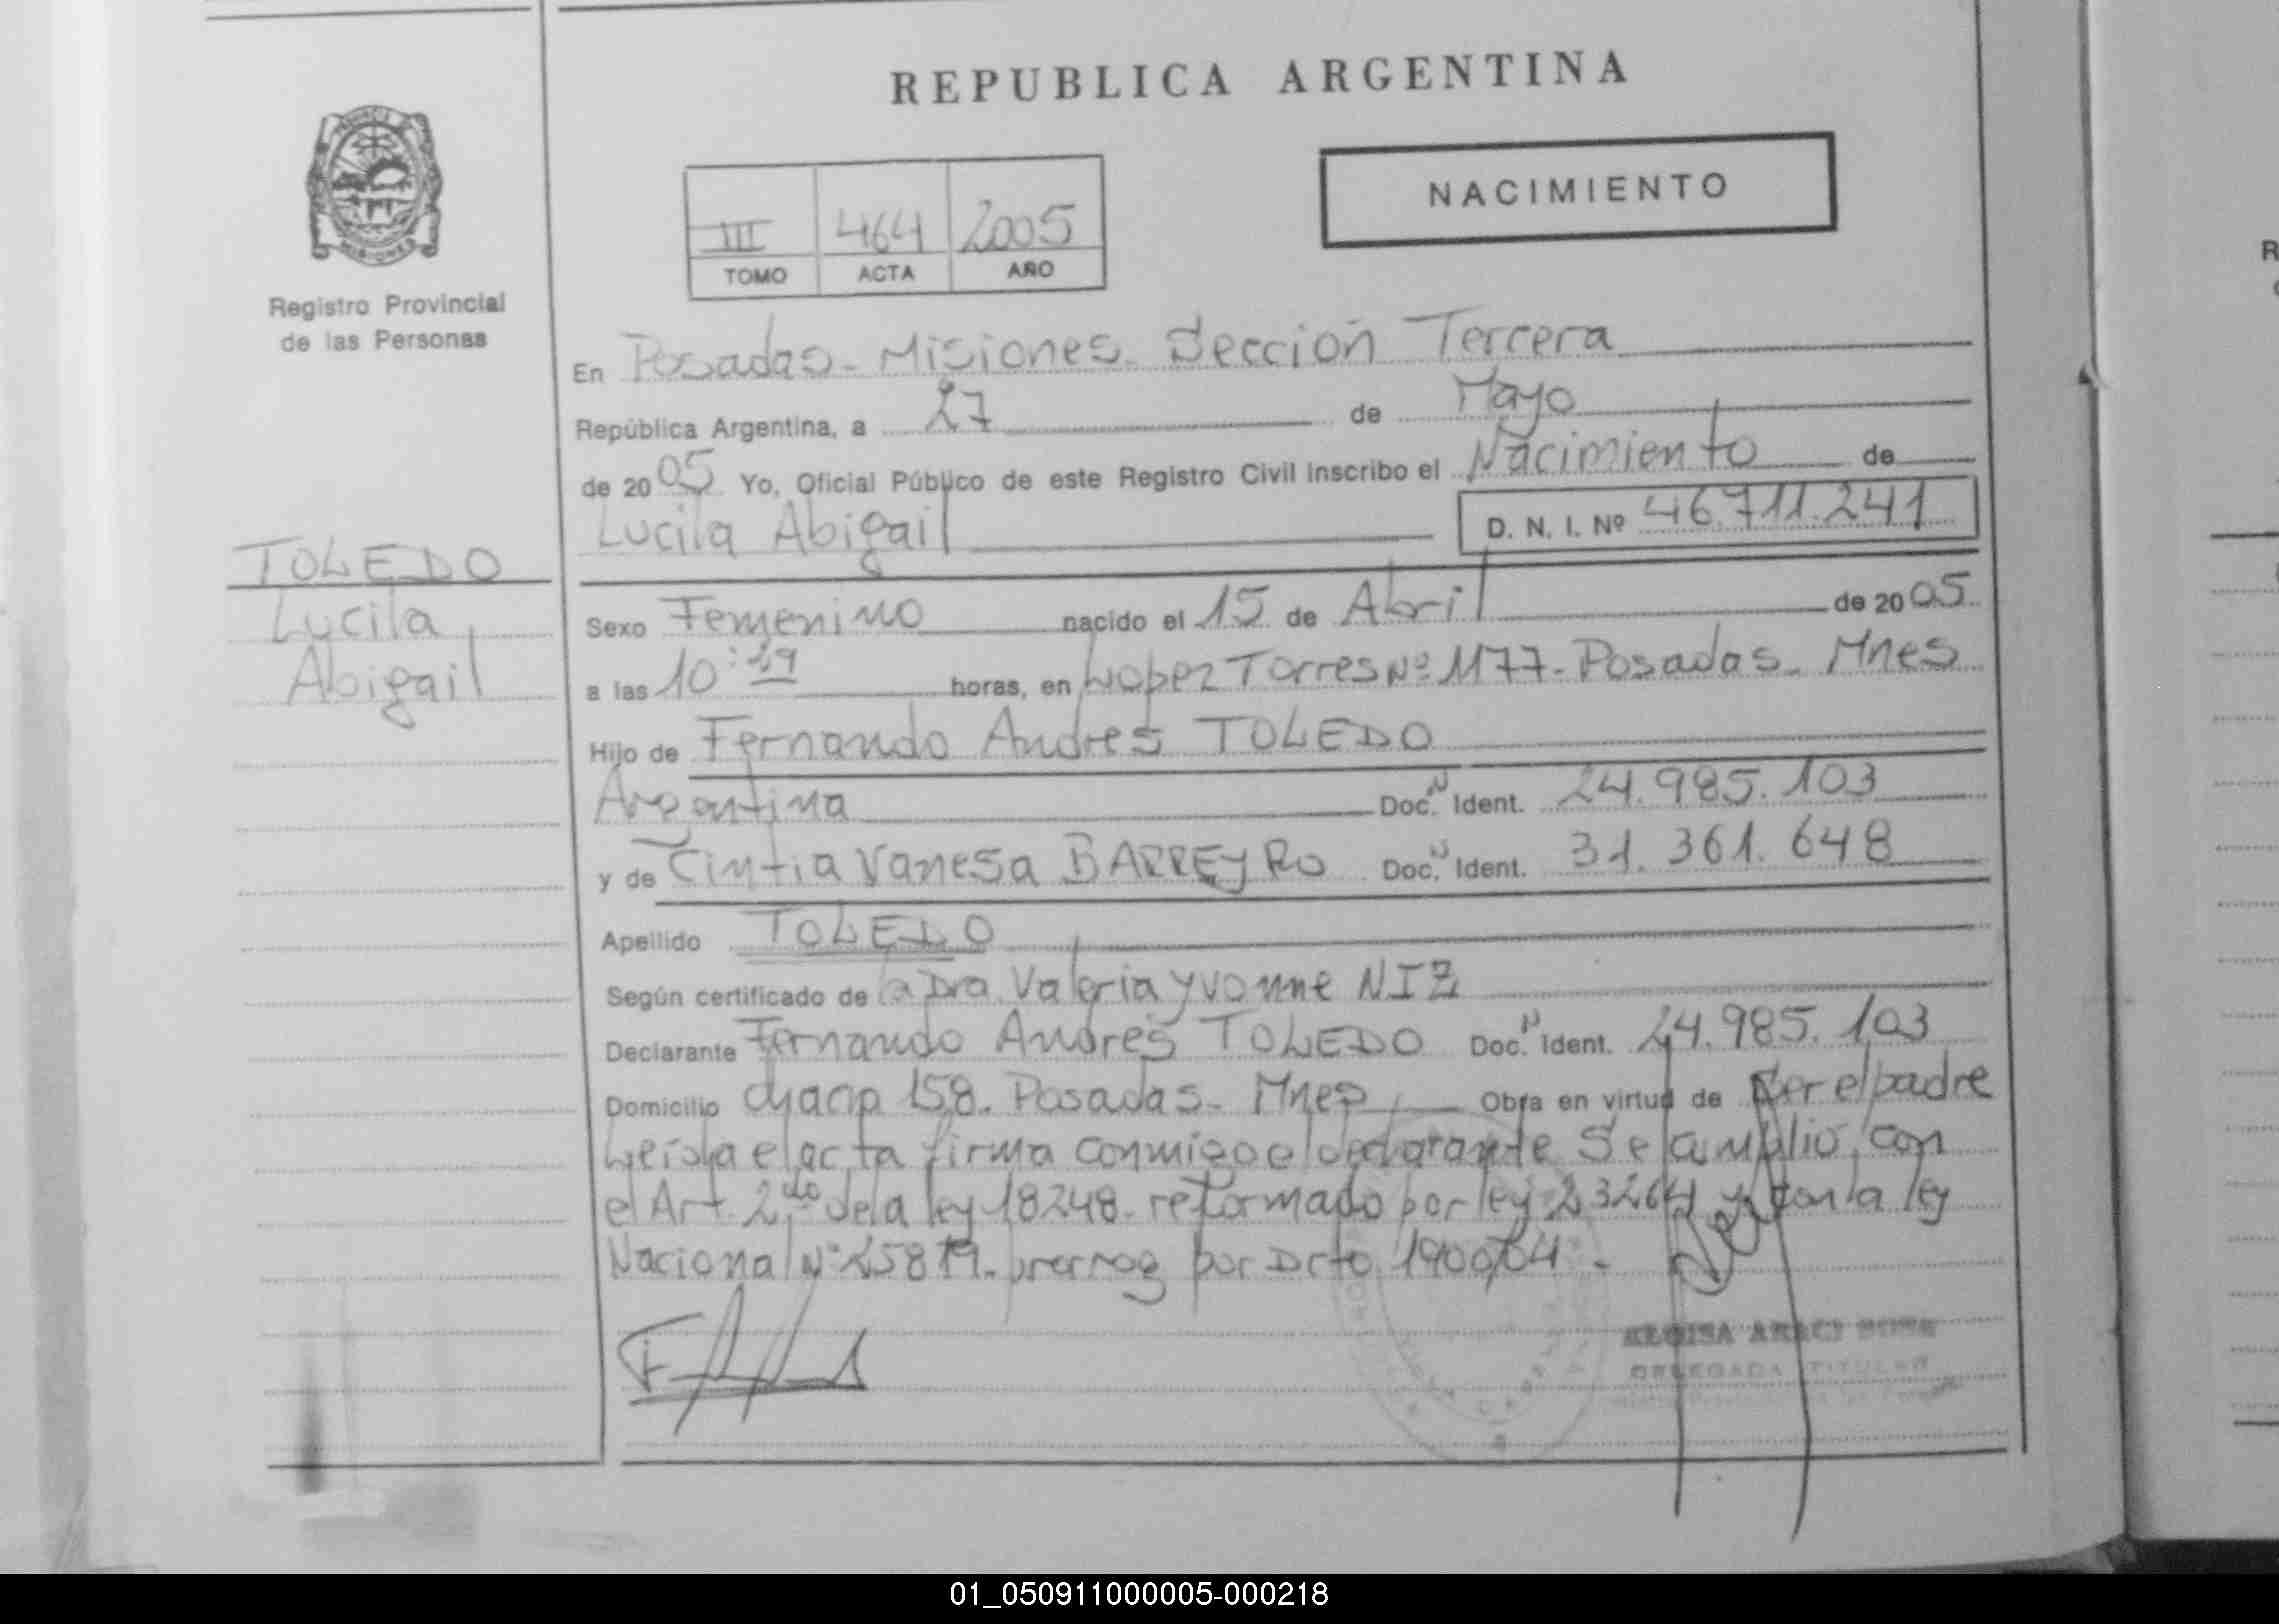 REPUBLICA ARGENTINA
NACIMIENTO
III 464 2005
TOMO ACTA AÑO
Registro Provincial
de las Personas
En Posadas - Misiones - Sección Tercera
República Argentina, a 27 de Mayo
de 2005 Yo, Oficial Público de este Registro Civil inscribo el Nacimiento de
Lucila Abigail D. N. I. Nº 46.711.241
TOLEDO
Lucila
Abigail
Sexo Femenino nacido el 15 de Abril de 2005
a las 10:29 horas, en Lopez Torres Nº 1177 - Posadas - Mnes
Hijo de Fernando Andrés TOLEDO
Argentina Doc. N Ident. 24.985.103
y de Cintia Vanesa BARREYRO Doc. N Ident. 31.361.648
Apellido TOLEDO
Según certificado de la Dra. Valeria Yvonne NIZ
Declarante Fernando Andrés TOLEDO Doc. N Ident. 24.985.103
Domicilio chacra 158. Posadas - Mnes Obra en virtud de ser el padre
Leída el acta firma conmigo el declarante Se cumplió con
el Art. 2do de la ley 18248 - reformado por ley 23264 y con la ley
Nacional Nº 25819 - prorrog por Dcto 1900/04 -
ARACI SOSA
DELEGADA TITULAR
01_050911000005-000218